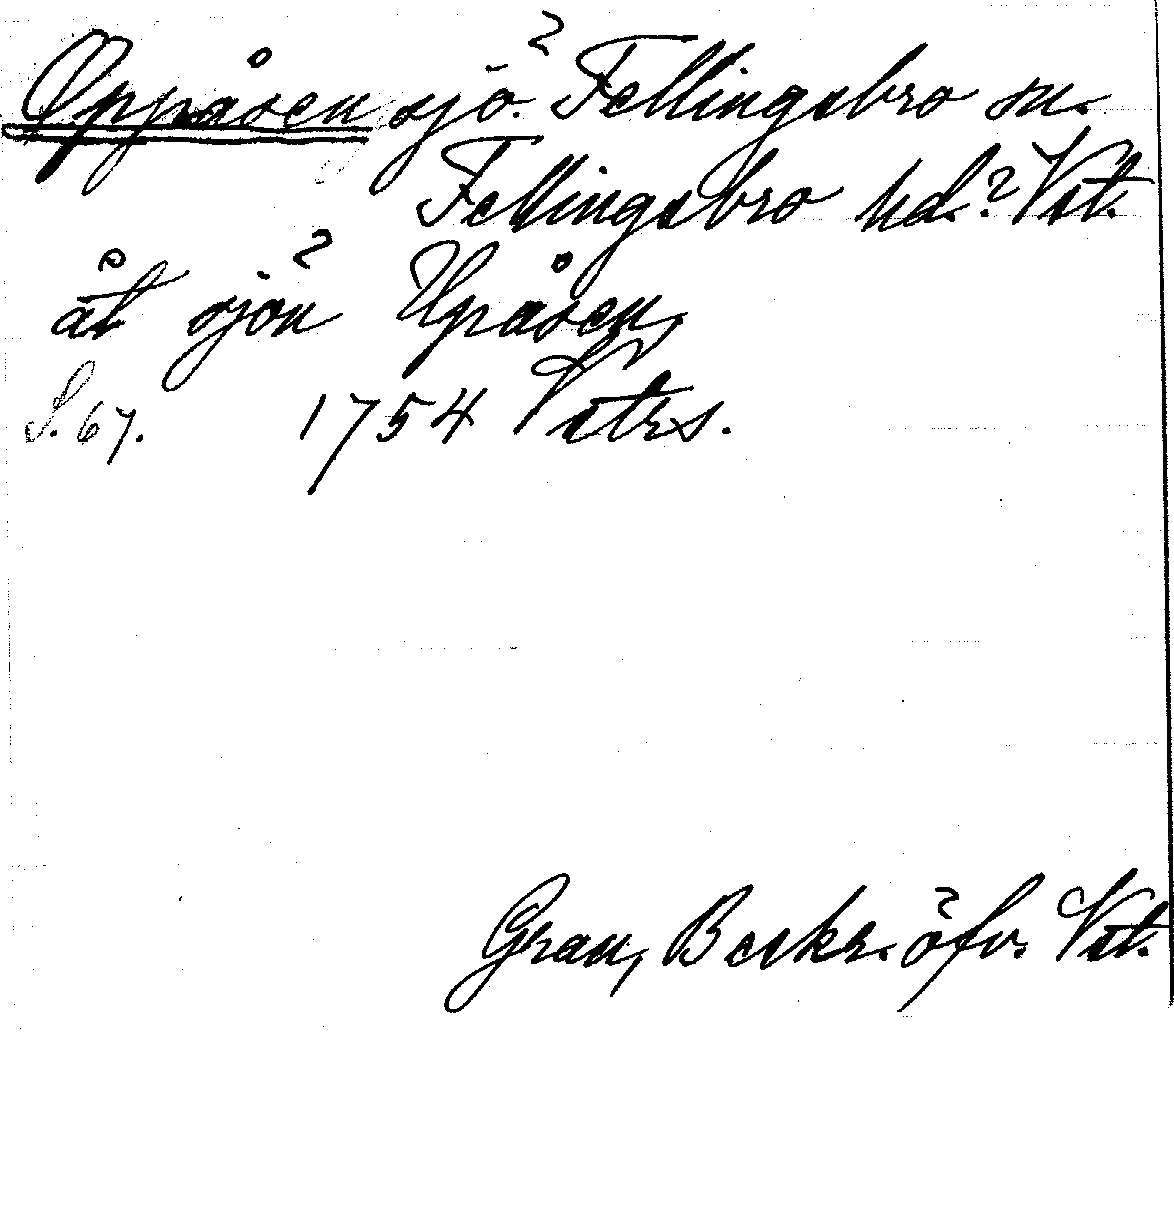 Oppåsen sjö. Fellingsbro sn.
Fellingsbro hd. Vst.
åt sjön Upåsen,
S. 67. 1754 Vstrs.
Grau, Beskr. öfv. Vst.